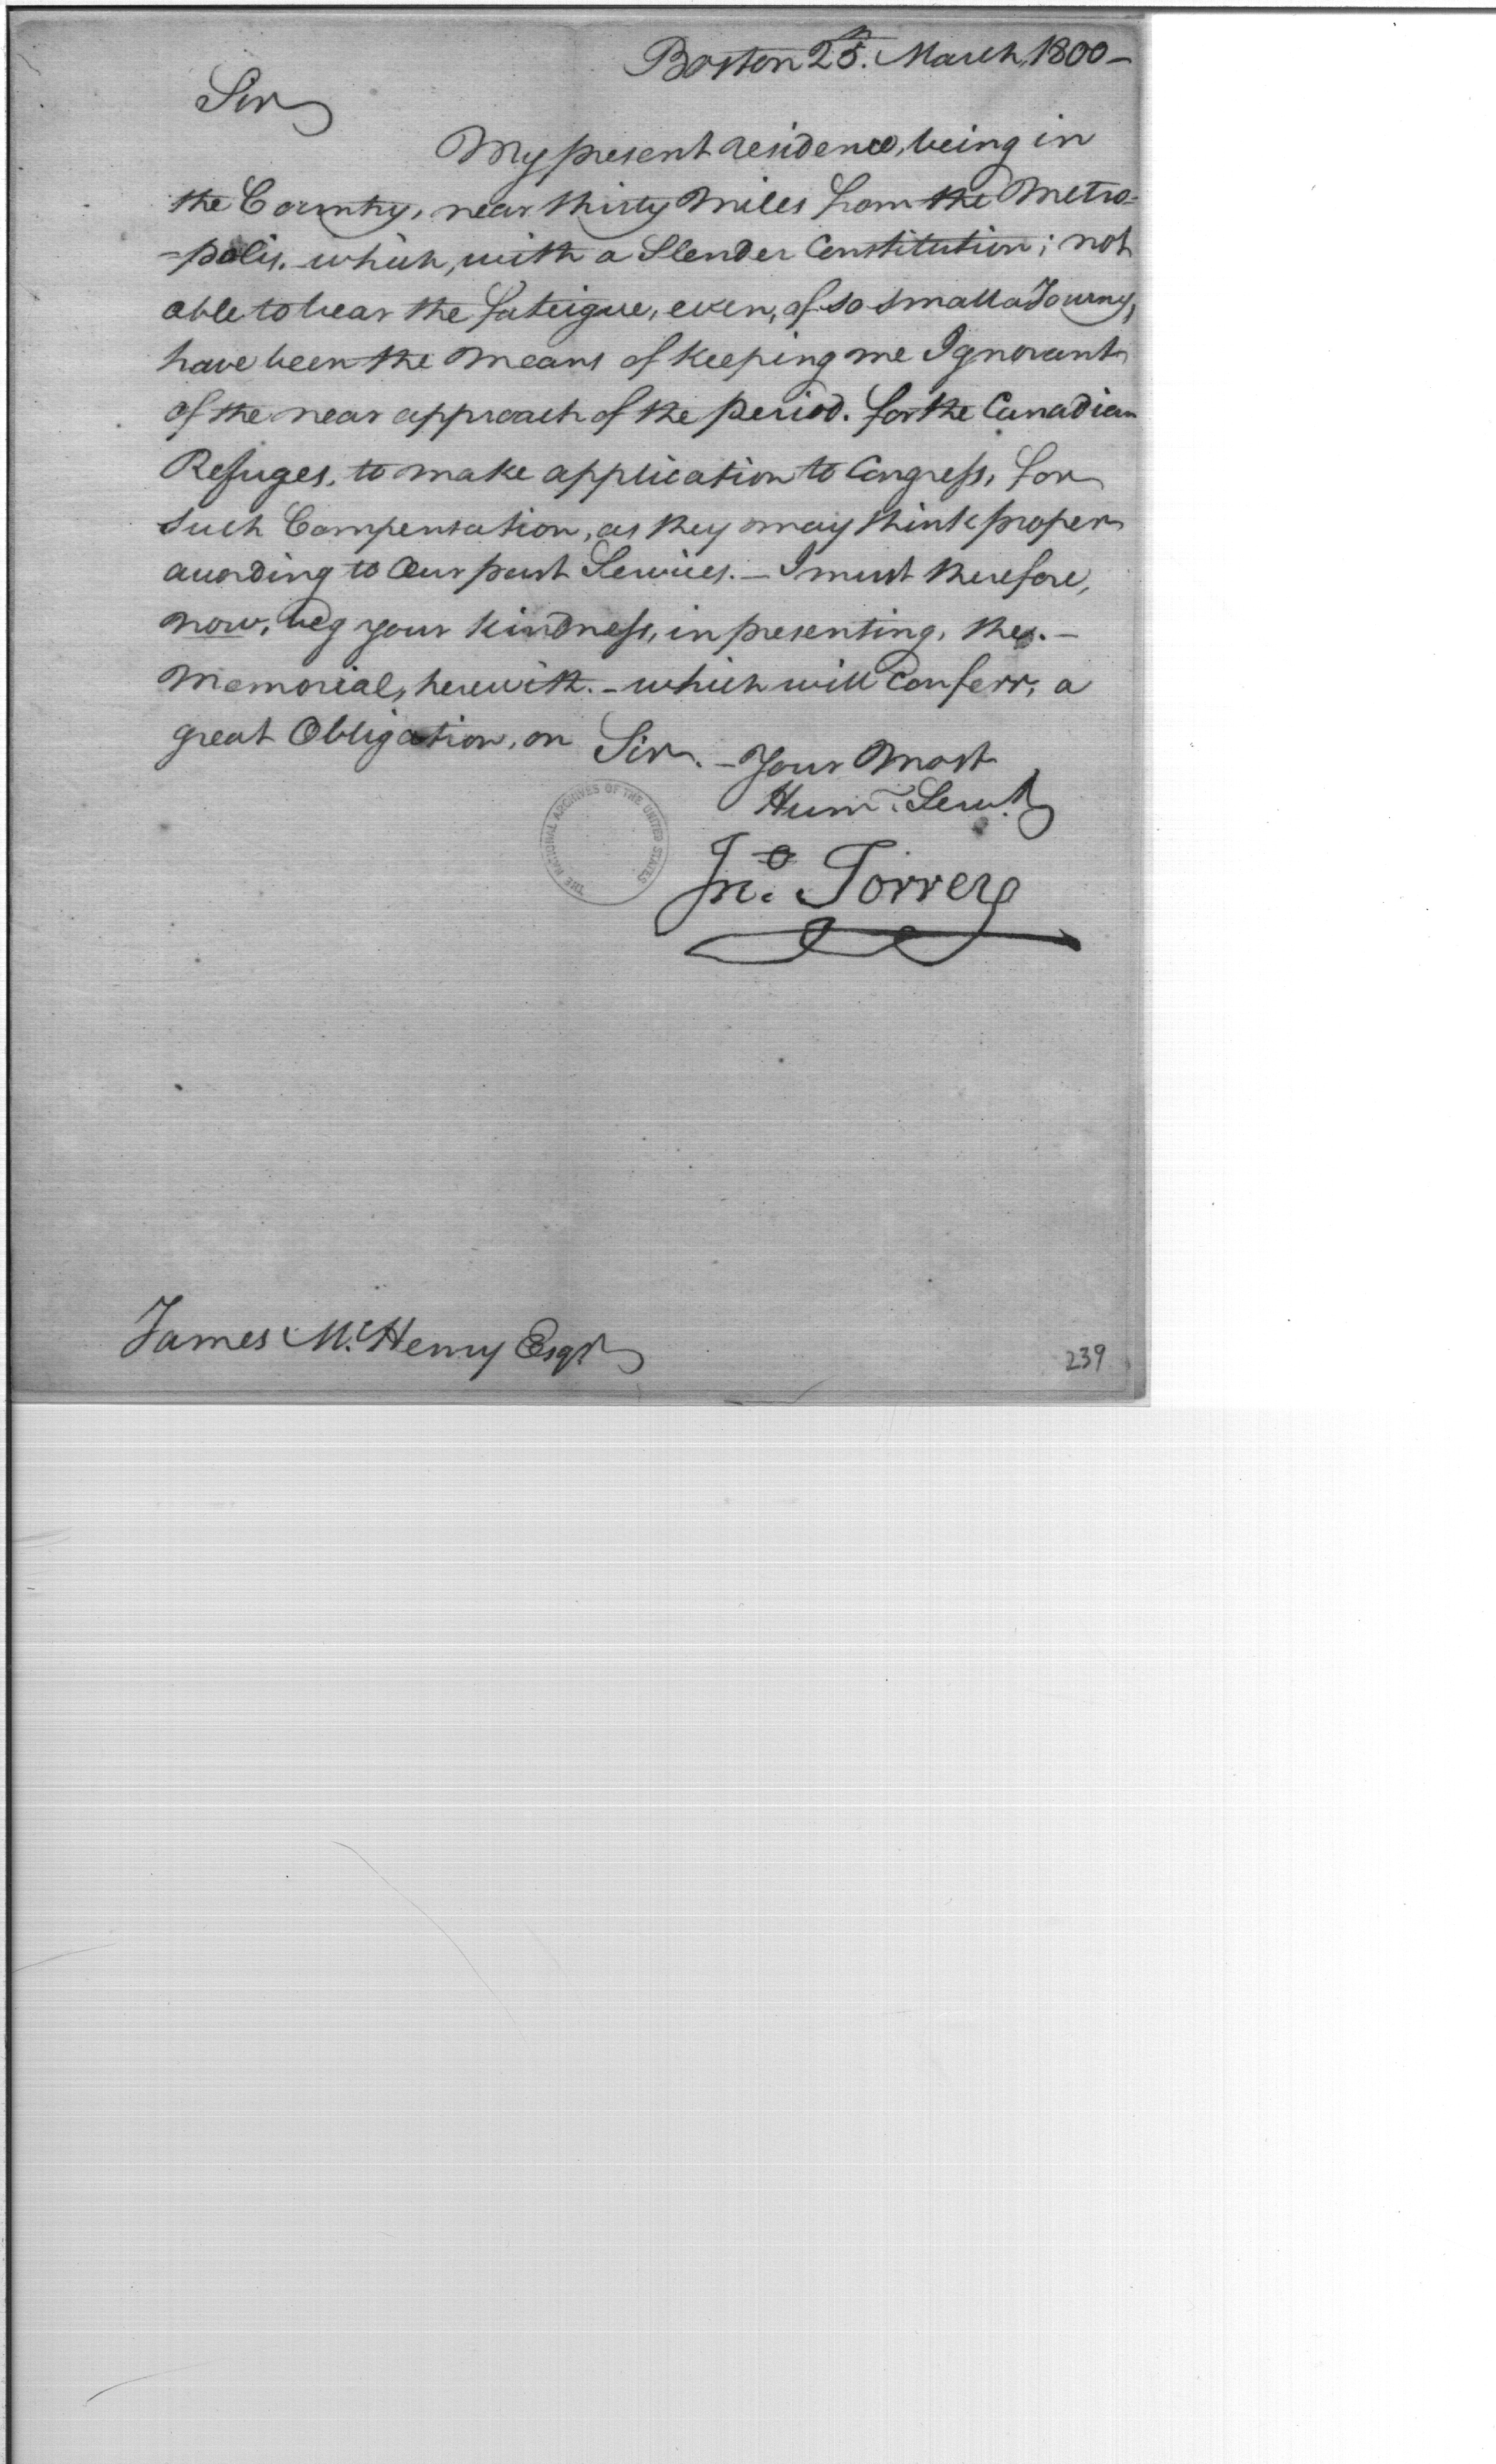 Boston 25th. March, 1800 -
Sir
My present residence, being in
the Country, near thirty Miles from the Metro-
-polis. which, with a Slender Constitution; not
able to bear the fateigue, even, of so small a Journy,
have been the Means of keeping me Ignorant
of the near approach of the period. for the Canadian
Refuges, to make application to Congress, for
such Compensation, as they may think proper
according to Our past Services. - I must therefore,
now, beg your kindness, in presenting, the. -
Memorial, herewith. - which will Conferr, a
great Obligation, on Sir. - Your Most
Humle. Servt.
Jno. Torrey
THE NATIONAL ARCHIVES OF THE UNITED STATES
James McHenry Esqr.
239